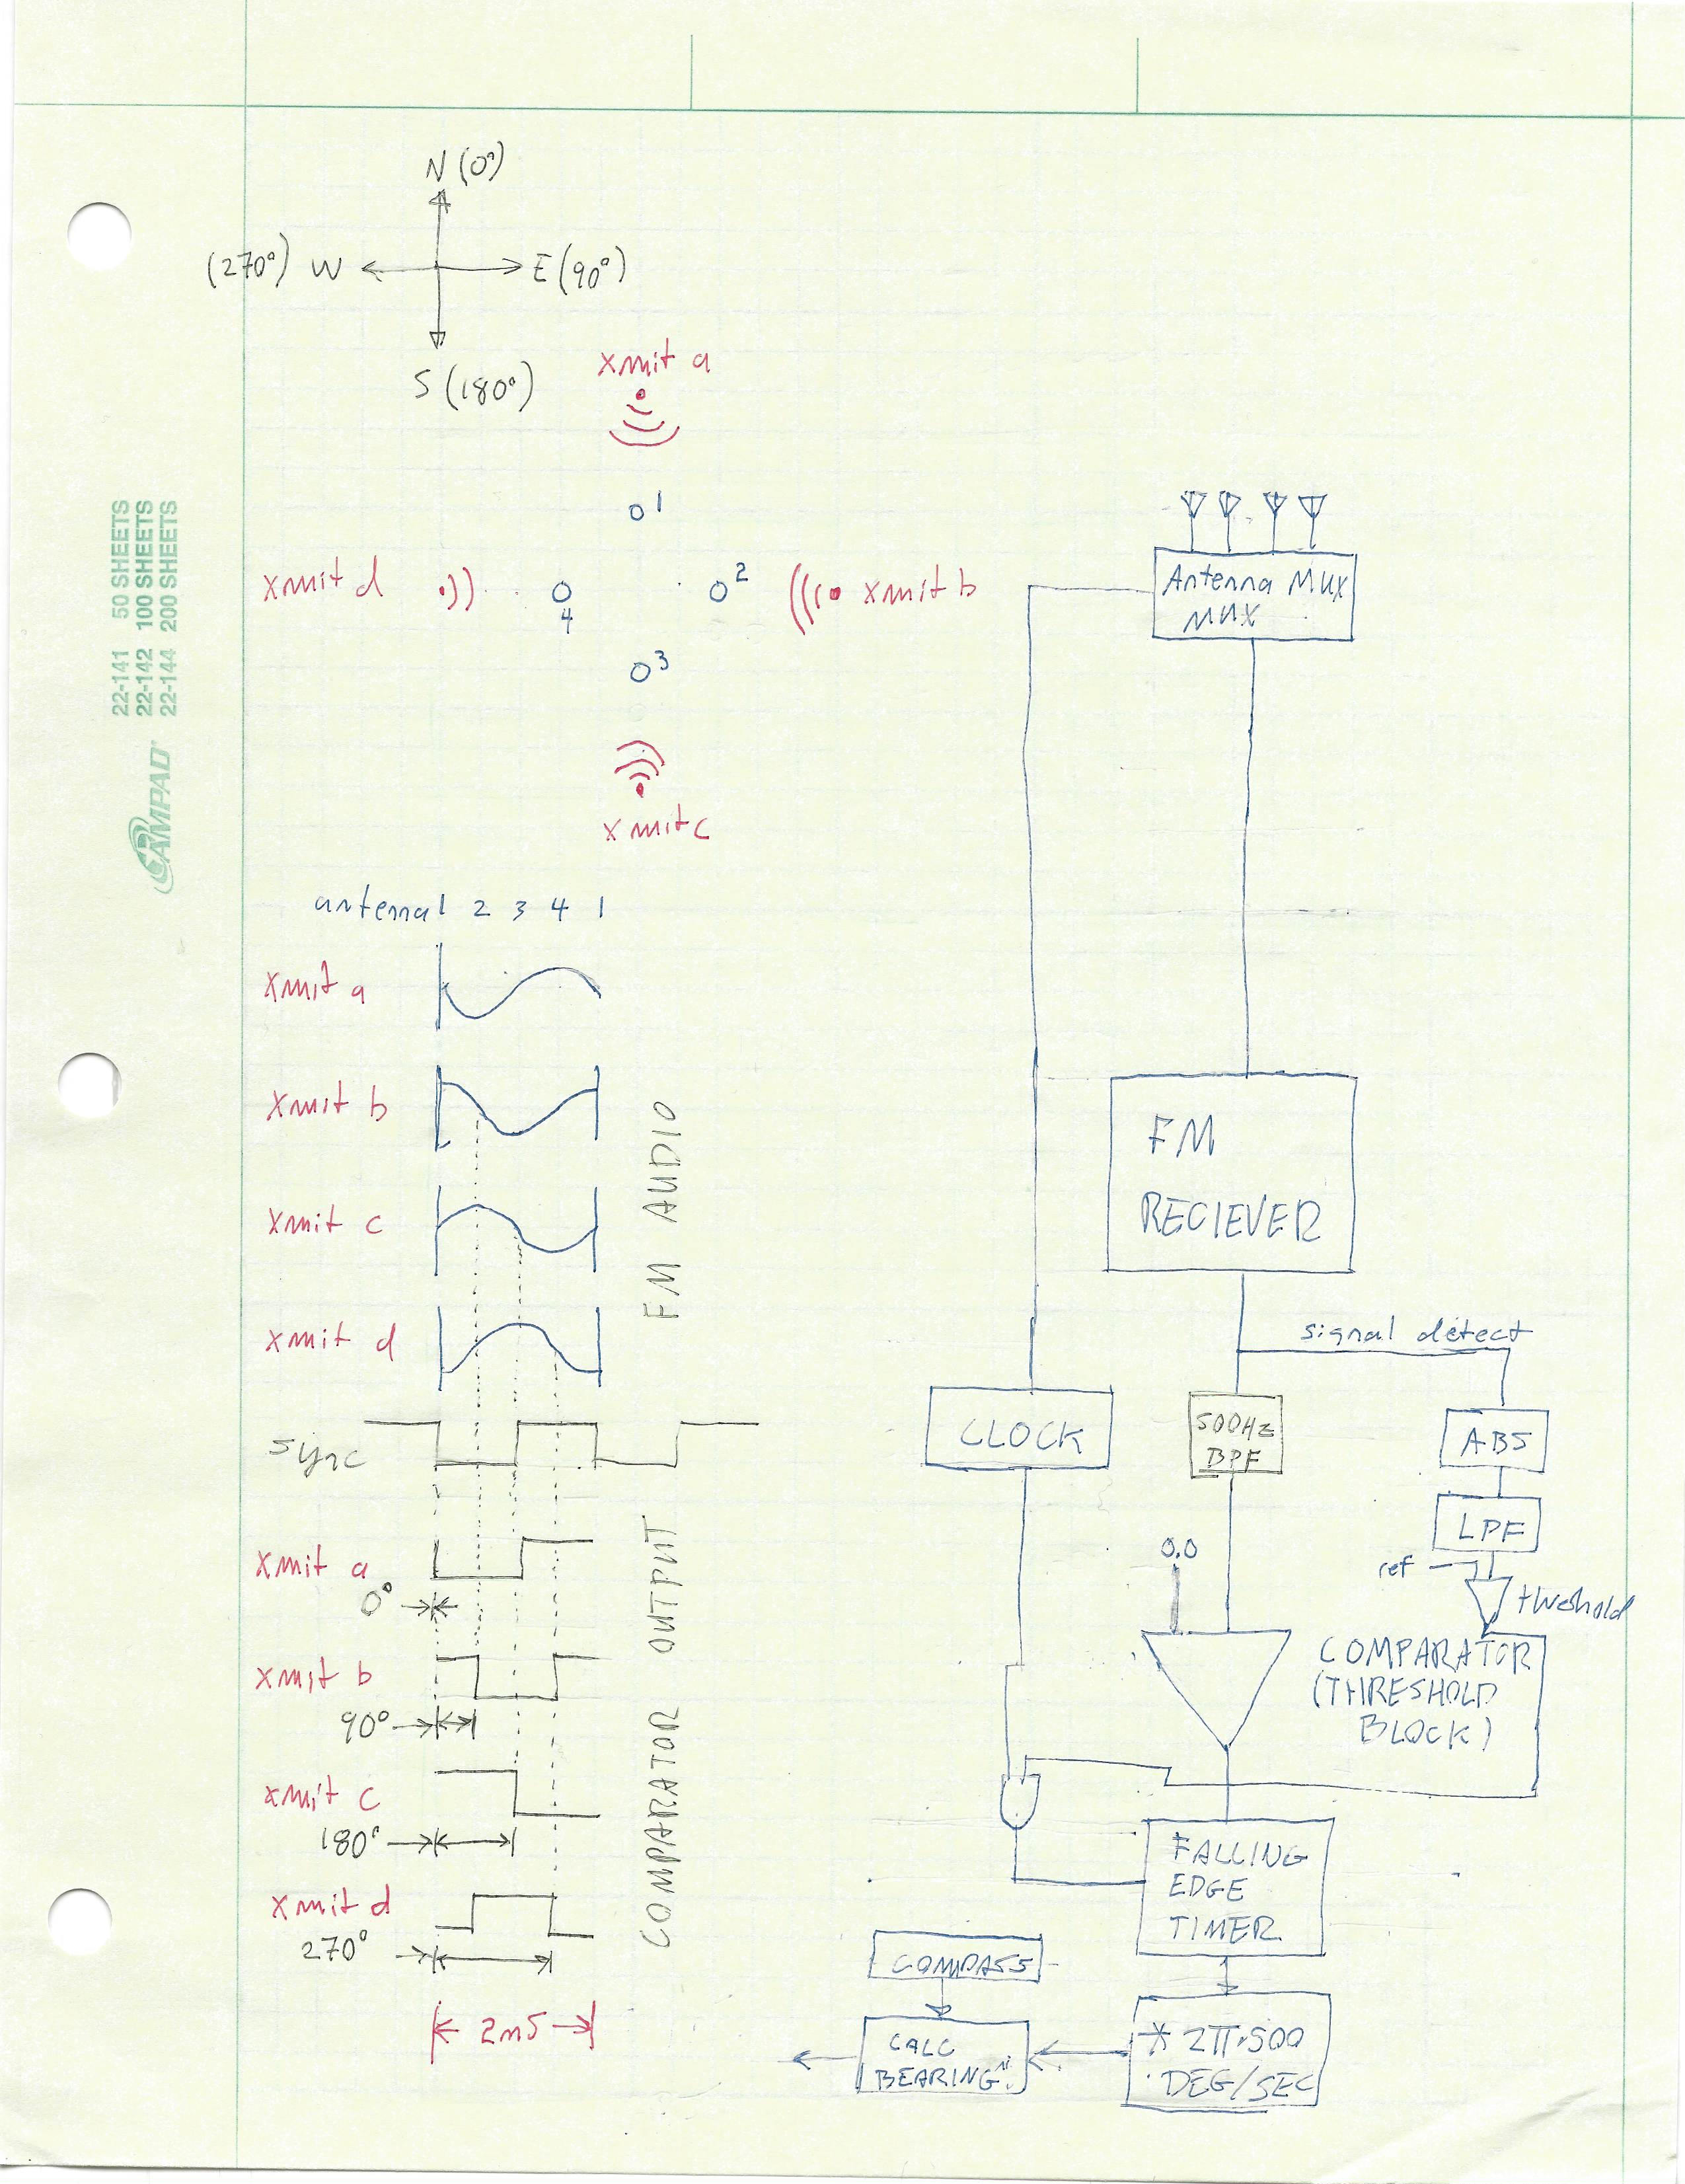 N (0°)
(270°) W
E (90°)
S (180°)
xmit a
1
xmit d
4
2
xmit b
3
xmit c
22-141 50 SHEETS
22-142 100 SHEETS
22-144 200 SHEETS
AMPAD
antenna 1 2 3 4 1
xmit a
xmit b
xmit c
xmit d
FM AUDIO
sync
xmit a
0°
xmit b
90°
xmit c
180°
xmit d
270°
COMPARATOR OUTPUT
2mS
Antenna MUX
MUX
FM
RECIEVER
signal detect
CLOCK
500HZ
BPF
ABS
LPF
0.0
ref
threshold
COMPARATOR
(THRESHOLD
BLOCK)
FALLING
EDGE
TIMER
COMPASS
CALC
BEARING
* 2π·500
DEG/SEC